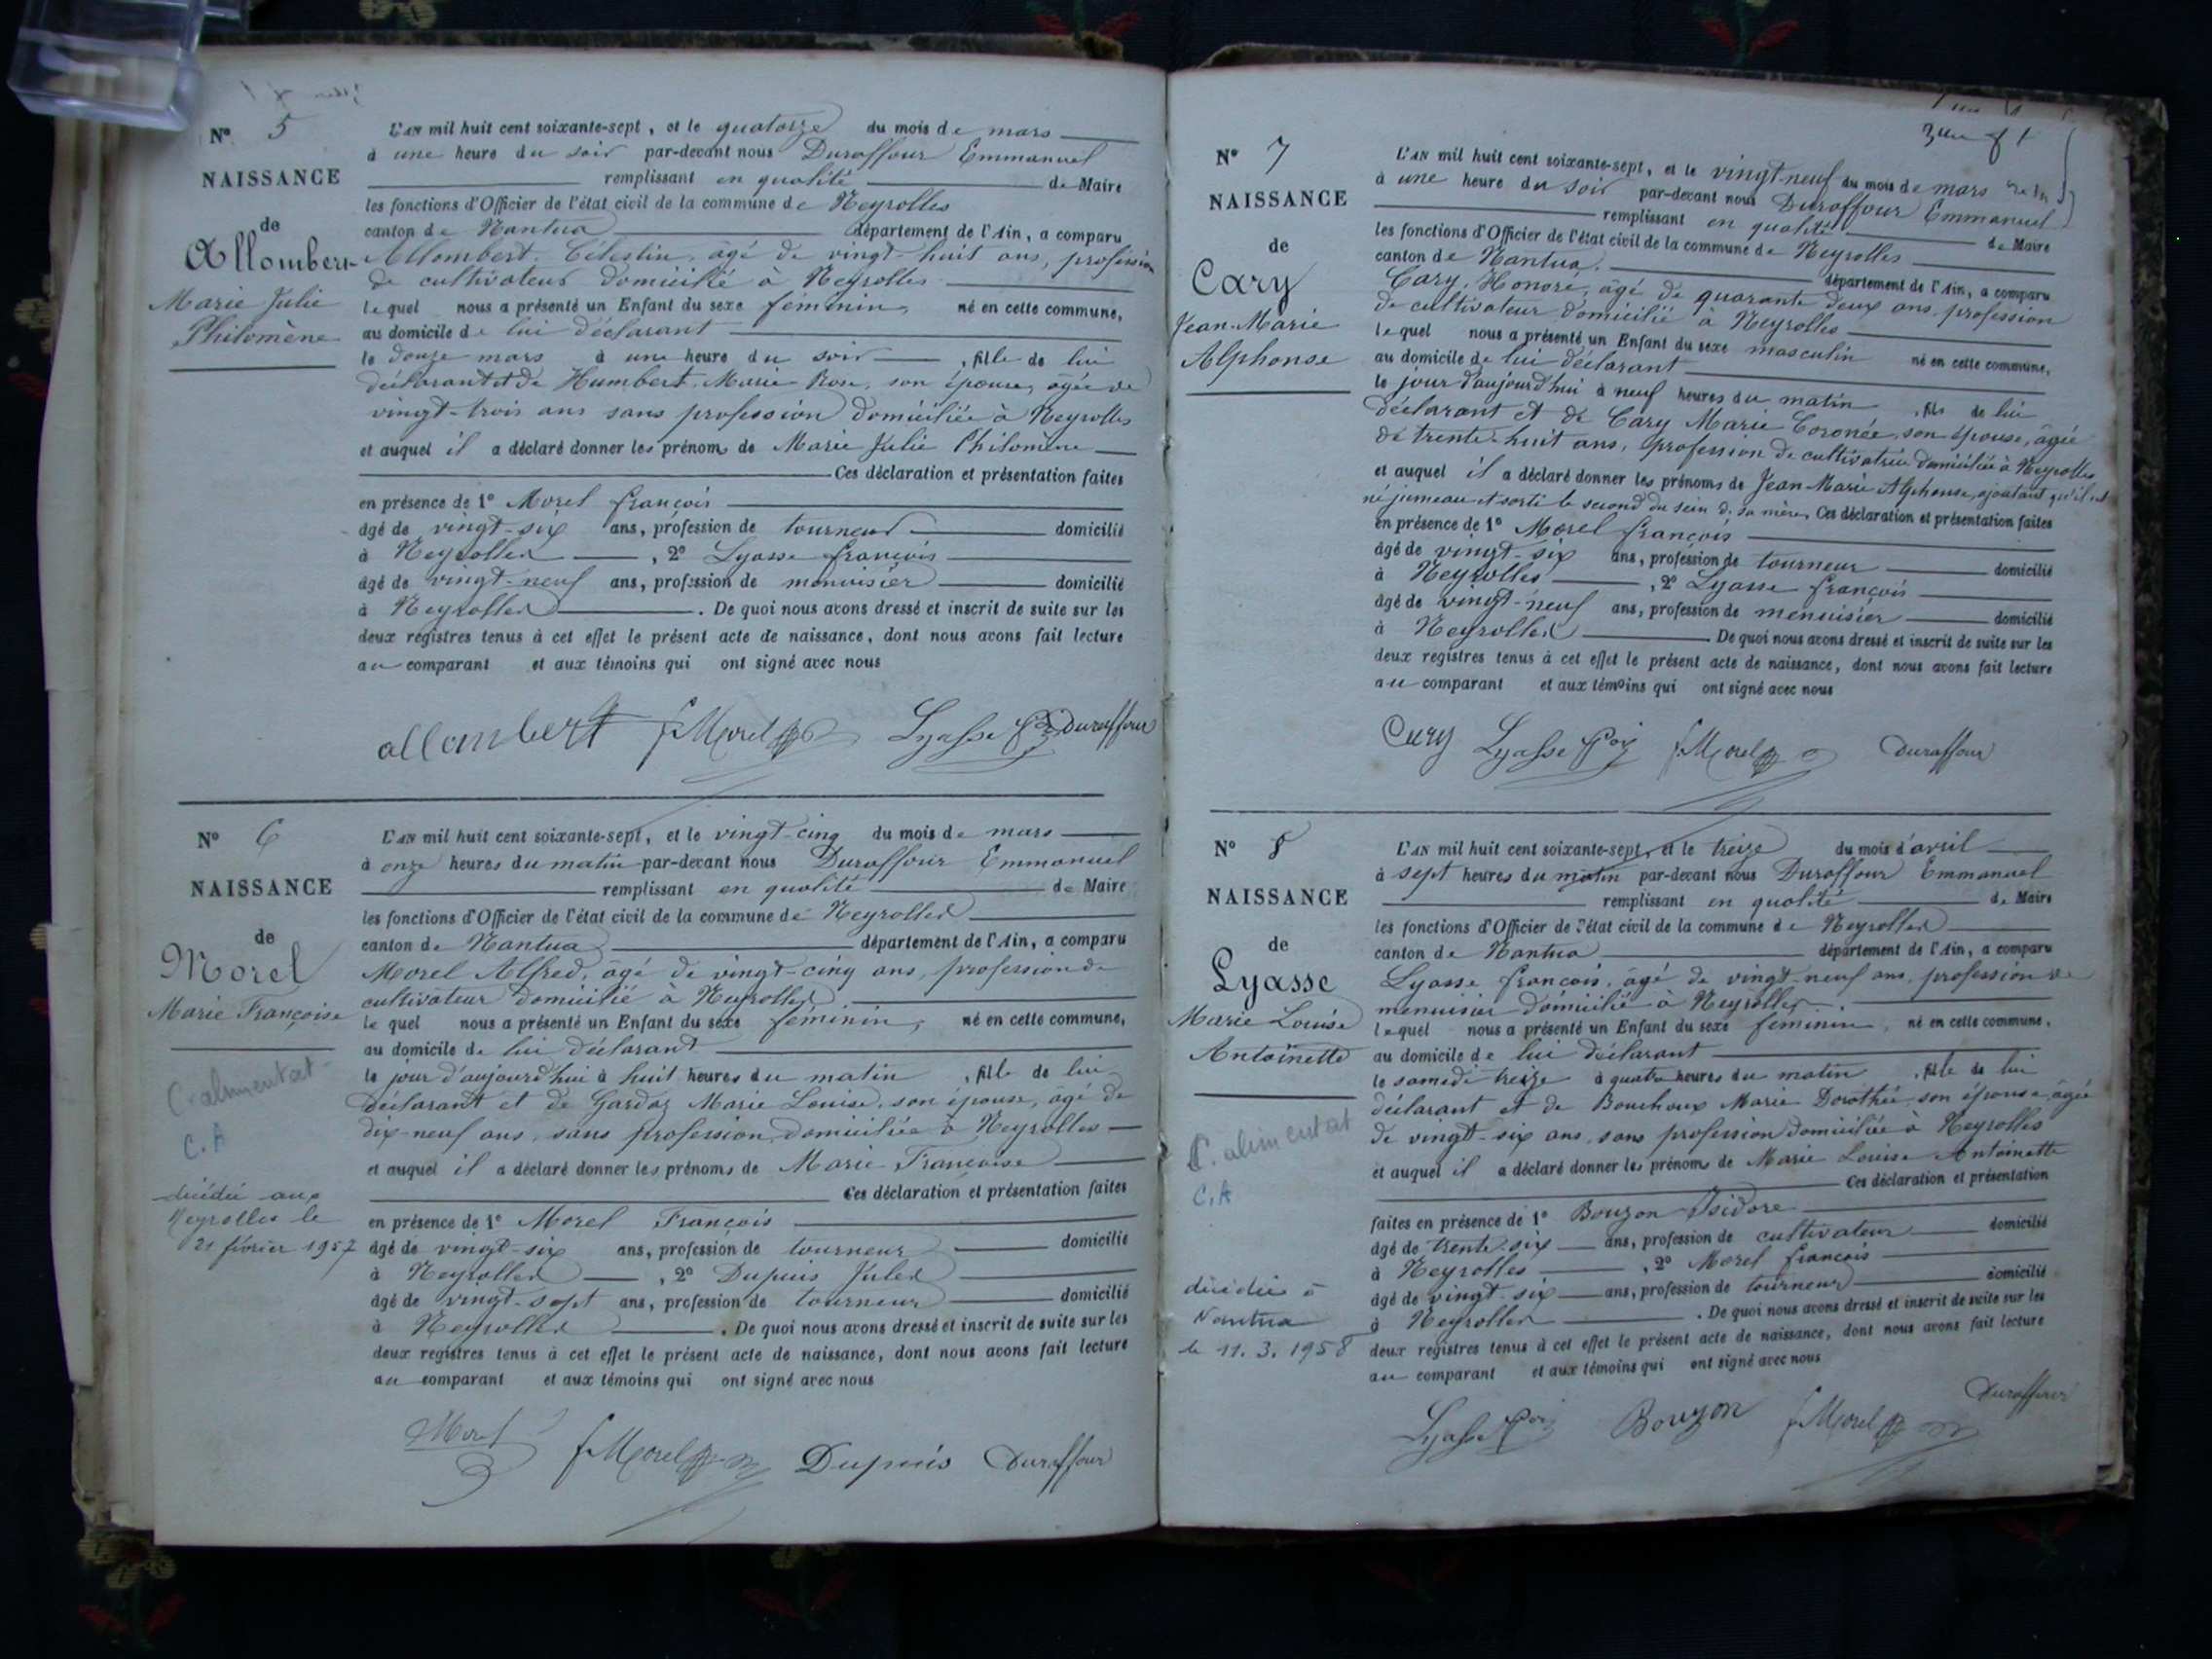 N° 5
NAISSANCE
de
Allombert
Marie Julie
Philomène
L'AN mil huit cent soixante-sept, et le quatorze du mois de mars
à une heure du soir par-devant nous Duraffour Emmanuel
remplissant en qualité de Maire
les fonctions d'Officier de l'état civil de la commune de Neyrolles
canton de Nantua département de l'Ain, a comparu
Allombert Célestin, âgé de vingt-huit ans, profession
de cultivateur domicilié à Neyrolles
lequel nous a présenté un Enfant du sexe féminin, né en cette commune,
au domicile de lui déclarant
le douze mars à une heure du soir, fille de lui
déclarant et de Humbert Marie Rose, son épouse, âgée de
vingt-trois ans sans profession domiciliée à Neyrolles
et auquel il a déclaré donner les prénoms de Marie Julie Philomène
Ces déclaration et présentation faites
en présence de 1° Morel françois
âgé de vingt-six ans, profession de tourneur domicilié
à Neyrolles, 2° Lyasse françois
âgé de vingt-neuf ans, profession de menuisier domicilié
à Neyrolles. De quoi nous avons dressé et inscrit de suite sur les
deux registres tenus à cet effet le présent acte de naissance, dont nous avons fait lecture
au comparant et aux témoins qui ont signé avec nous
allombert fMorel Lyasse foi Duraffour
N° 6
NAISSANCE
de
Morel
Marie Françoise
C. alimentat
C. A
décédée aux
Neyrolles le
21 février 1957
L'AN mil huit cent soixante-sept, et le vingt-cinq du mois de mars
à onze heures du matin par-devant nous Duraffour Emmanuel
remplissant en qualité de Maire
les fonctions d'Officier de l'état civil de la commune de Neyrolles
canton de Nantua département de l'Ain, a comparu
Morel Alfred, âgé de vingt-cinq ans, profession de
cultivateur domicilié à Neyrolles
lequel nous a présenté un Enfant du sexe féminin, né en cette commune,
au domicile de lui déclarant
le jour d'aujourd'hui à huit heures du matin, fille de lui
déclarant et de Gardaz Marie Louise, son épouse, âgé de
dix-neuf ans, sans profession domiciliée à Neyrolles
et auquel il a déclaré donner les prénoms de Marie Françoise
Ces déclaration et présentation faites
en présence de 1° Morel François
âgé de vingt-six ans, profession de tourneur domicilié
à Neyrolles, 2° Dupuis Jules
âgé de vingt-sept ans, profession de tourneur domicilié
à Neyrolles. De quoi nous avons dressé et inscrit de suite sur les
deux registres tenus à cet effet le présent acte de naissance, dont nous avons fait lecture
au comparant et aux témoins qui ont signé avec nous
Morel fMorel Dupuis Duraffour
N° 7
NAISSANCE
de
Cary
Jean-Marie
Alphonse
L'AN mil huit cent soixante-sept, et le vingt-neuf du mois de mars
à une heure du soir par-devant nous Duraffour Emmanuel
remplissant en qualité de Maire
les fonctions d'Officier de l'état civil de la commune de Neyrolles
canton de Nantua département de l'Ain, a comparu
Cary, Honoré, âgé de quarante deux ans, profession
de cultivateur domicilié à Neyrolles
lequel nous a présenté un Enfant du sexe masculin né en cette commune,
au domicile de lui déclarant
le jour d'aujourd'hui à neuf heures du matin, fils de lui
déclarant et de Cary Marie Coronée, son épouse, âgée
de trente-huit ans, profession de cultivatrice domiciliée à Neyrolles
et auquel il a déclaré donner les prénoms de Jean-Marie Alphonse, ajoutant qu'il est
né jumeau et sorti le second du sein de sa mère. Ces déclaration et présentation faites
en présence de 1° Morel françois
âgé de vingt-six ans, profession de tourneur domicilié
à Neyrolles, 2° Lyasse françois
âgé de vingt-neuf ans, profession de menuisier domicilié
à Neyrolles. De quoi nous avons dressé et inscrit de suite sur les
deux registres tenus à cet effet le présent acte de naissance, dont nous avons fait lecture
au comparant et aux témoins qui ont signé avec nous
Cary Lyasse foi fMorel Duraffour
N° 8
NAISSANCE
de
Lyasse
Marie Louise
Antoinette
C. alimentat
C. A
décédée à
Nantua
le 11. 3. 1958
L'AN mil huit cent soixante-sept, et le treize du mois d'avril
à sept heures du matin par-devant nous Duraffour Emmanuel
remplissant en qualité de Maire
les fonctions d'Officier de l'état civil de la commune de Neyrolles
canton de Nantua département de l'Ain, a comparu
Lyasse françois, âgé de vingt-neuf ans, profession de
menuisier domicilié à Neyrolles
lequel nous a présenté un Enfant du sexe féminin, né en cette commune,
au domicile de lui déclarant
le samedi treize à quatre heures du matin, fille de lui
déclarant et de Bouchoux Marie Dorothée, son épouse, âgée
de vingt-six ans, sans profession domiciliée à Neyrolles
et auquel il a déclaré donner les prénoms de Marie Louise Antoinette
Ces déclaration et présentation
faites en présence de 1° Bouzon Isidore
âgé de trente-six ans, profession de cultivateur domicilié
à Neyrolles, 2° Morel françois
âgé de vingt-six ans, profession de tourneur domicilié
à Neyrolles. De quoi nous avons dressé et inscrit de suite sur les
deux registres tenus à cet effet le présent acte de naissance, dont nous avons fait lecture
au comparant et aux témoins qui ont signé avec nous
Lyasse foi Bouzon fMorel Duraffour